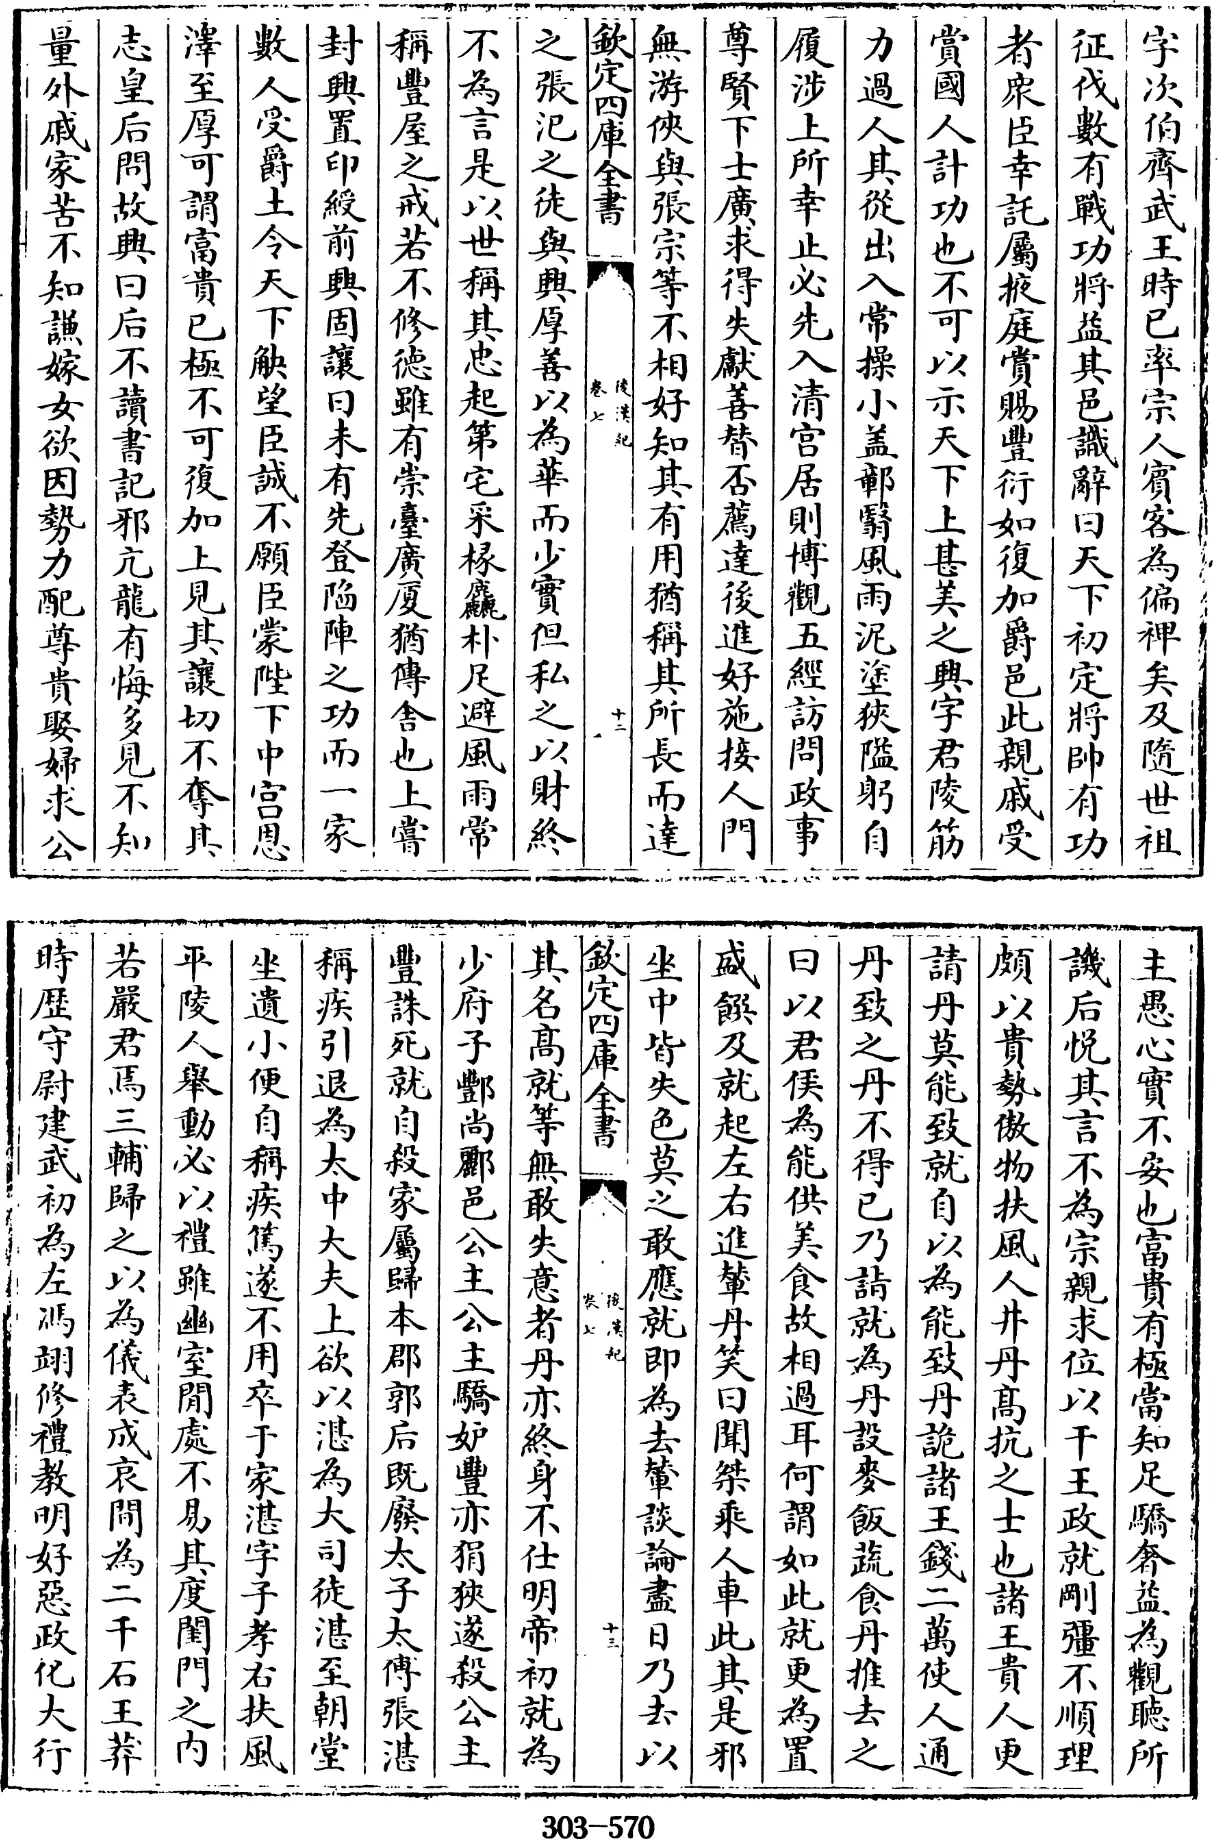 字次伯齊武王時已率宗人賓客為偏裨矣及隨世祖
征伐數有戰功將益其邑識辭曰天下初定將帥有功
者衆臣幸託屬掖庭賞賜豐衍如復加爵邑此親戚受
賞國人計功也不可以示天下上甚美之興字君陵筋
力過人其從出入常操小盖鄣翳風雨泥塗狹隘躬自
履涉上所幸止必先入清宫居則博觀五經訪問政事
尊賢下士廣求得失獻善替否薦達後進好施接人門
無游俠與張宗等不相好知其有用猶稱其所長而達
欽定四庫全書
後漢紀
卷七
十二
之張氾之徒與興厚善以為華而少實但私之以財終
不為言是以世稱其忠起第宅采椽麤朴足避風雨常
稱豐屋之戒若不修德雖有崇臺廣厦猶傳舎也上嘗
封興置印綬前興固讓曰未有先登陷陣之功而一家
數人受爵土令天下觖望臣誠不願臣蒙陛下中宫恩
澤至厚可謂富貴已極不可復加上見其讓切不奪其
志皇后問故興曰后不讀書記邪亢龍有悔多見不知
量外戚家苦不知謙嫁女欲因勢力配尊貴娶婦求公
主愚心實不安也富貴有極當知足驕奢益為觀聽所
譏后悦其言不為宗親求位以干王政就剛彊不順理
頗以貴勢傲物扶風人井丹髙抗之士也諸王貴人更
請丹莫能致就自以為能致丹詭諸王錢二萬使人通
丹致之丹不得已乃詣就為丹設麥飯蔬食丹推去之
曰以君侯為能供美食故相過耳何謂如此就更為置
盛饌及就起左右進輦丹笑曰聞桀乘人車此其是邪
坐中皆失色莫之敢應就即為去輦談論盡日乃去以
欽定四庫全書
後漢紀
卷七
十三
其名髙就等無敢失意者丹亦終身不仕明帝初就為
少府子酆尚酈邑公主公主驕妒豐亦狷狹遂殺公主
豐誅死就自殺家屬歸本郡郭后既廢太子太傅張湛
稱疾引退為太中大夫上欲以湛為大司徒湛至朝堂
坐遺小便自稱疾篤遂不用卒于家湛字子孝右扶風
平陵人舉動必以禮雖幽室閒處不易其度閨門之内
若嚴君焉三輔歸之以為儀表成哀間為二千石王莽
時歴守尉建武初為左馮翊修禮教明好惡政化大行
303-570